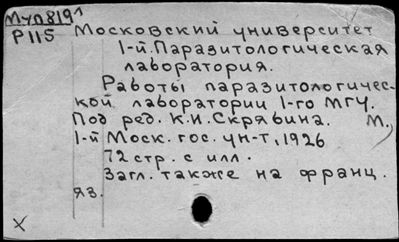 Муп8191
P115
Московский университет
1-й. Паразитологическая
лаборатория.
Работы паразитологичес-
кой лаборатории 1-го МГУ.
Под ред. К.И. Скрябина. М.,
1-й Моск. гос. ун-т, 1926
72 стр. с илл.
Загл. также на франц.
яз.
х